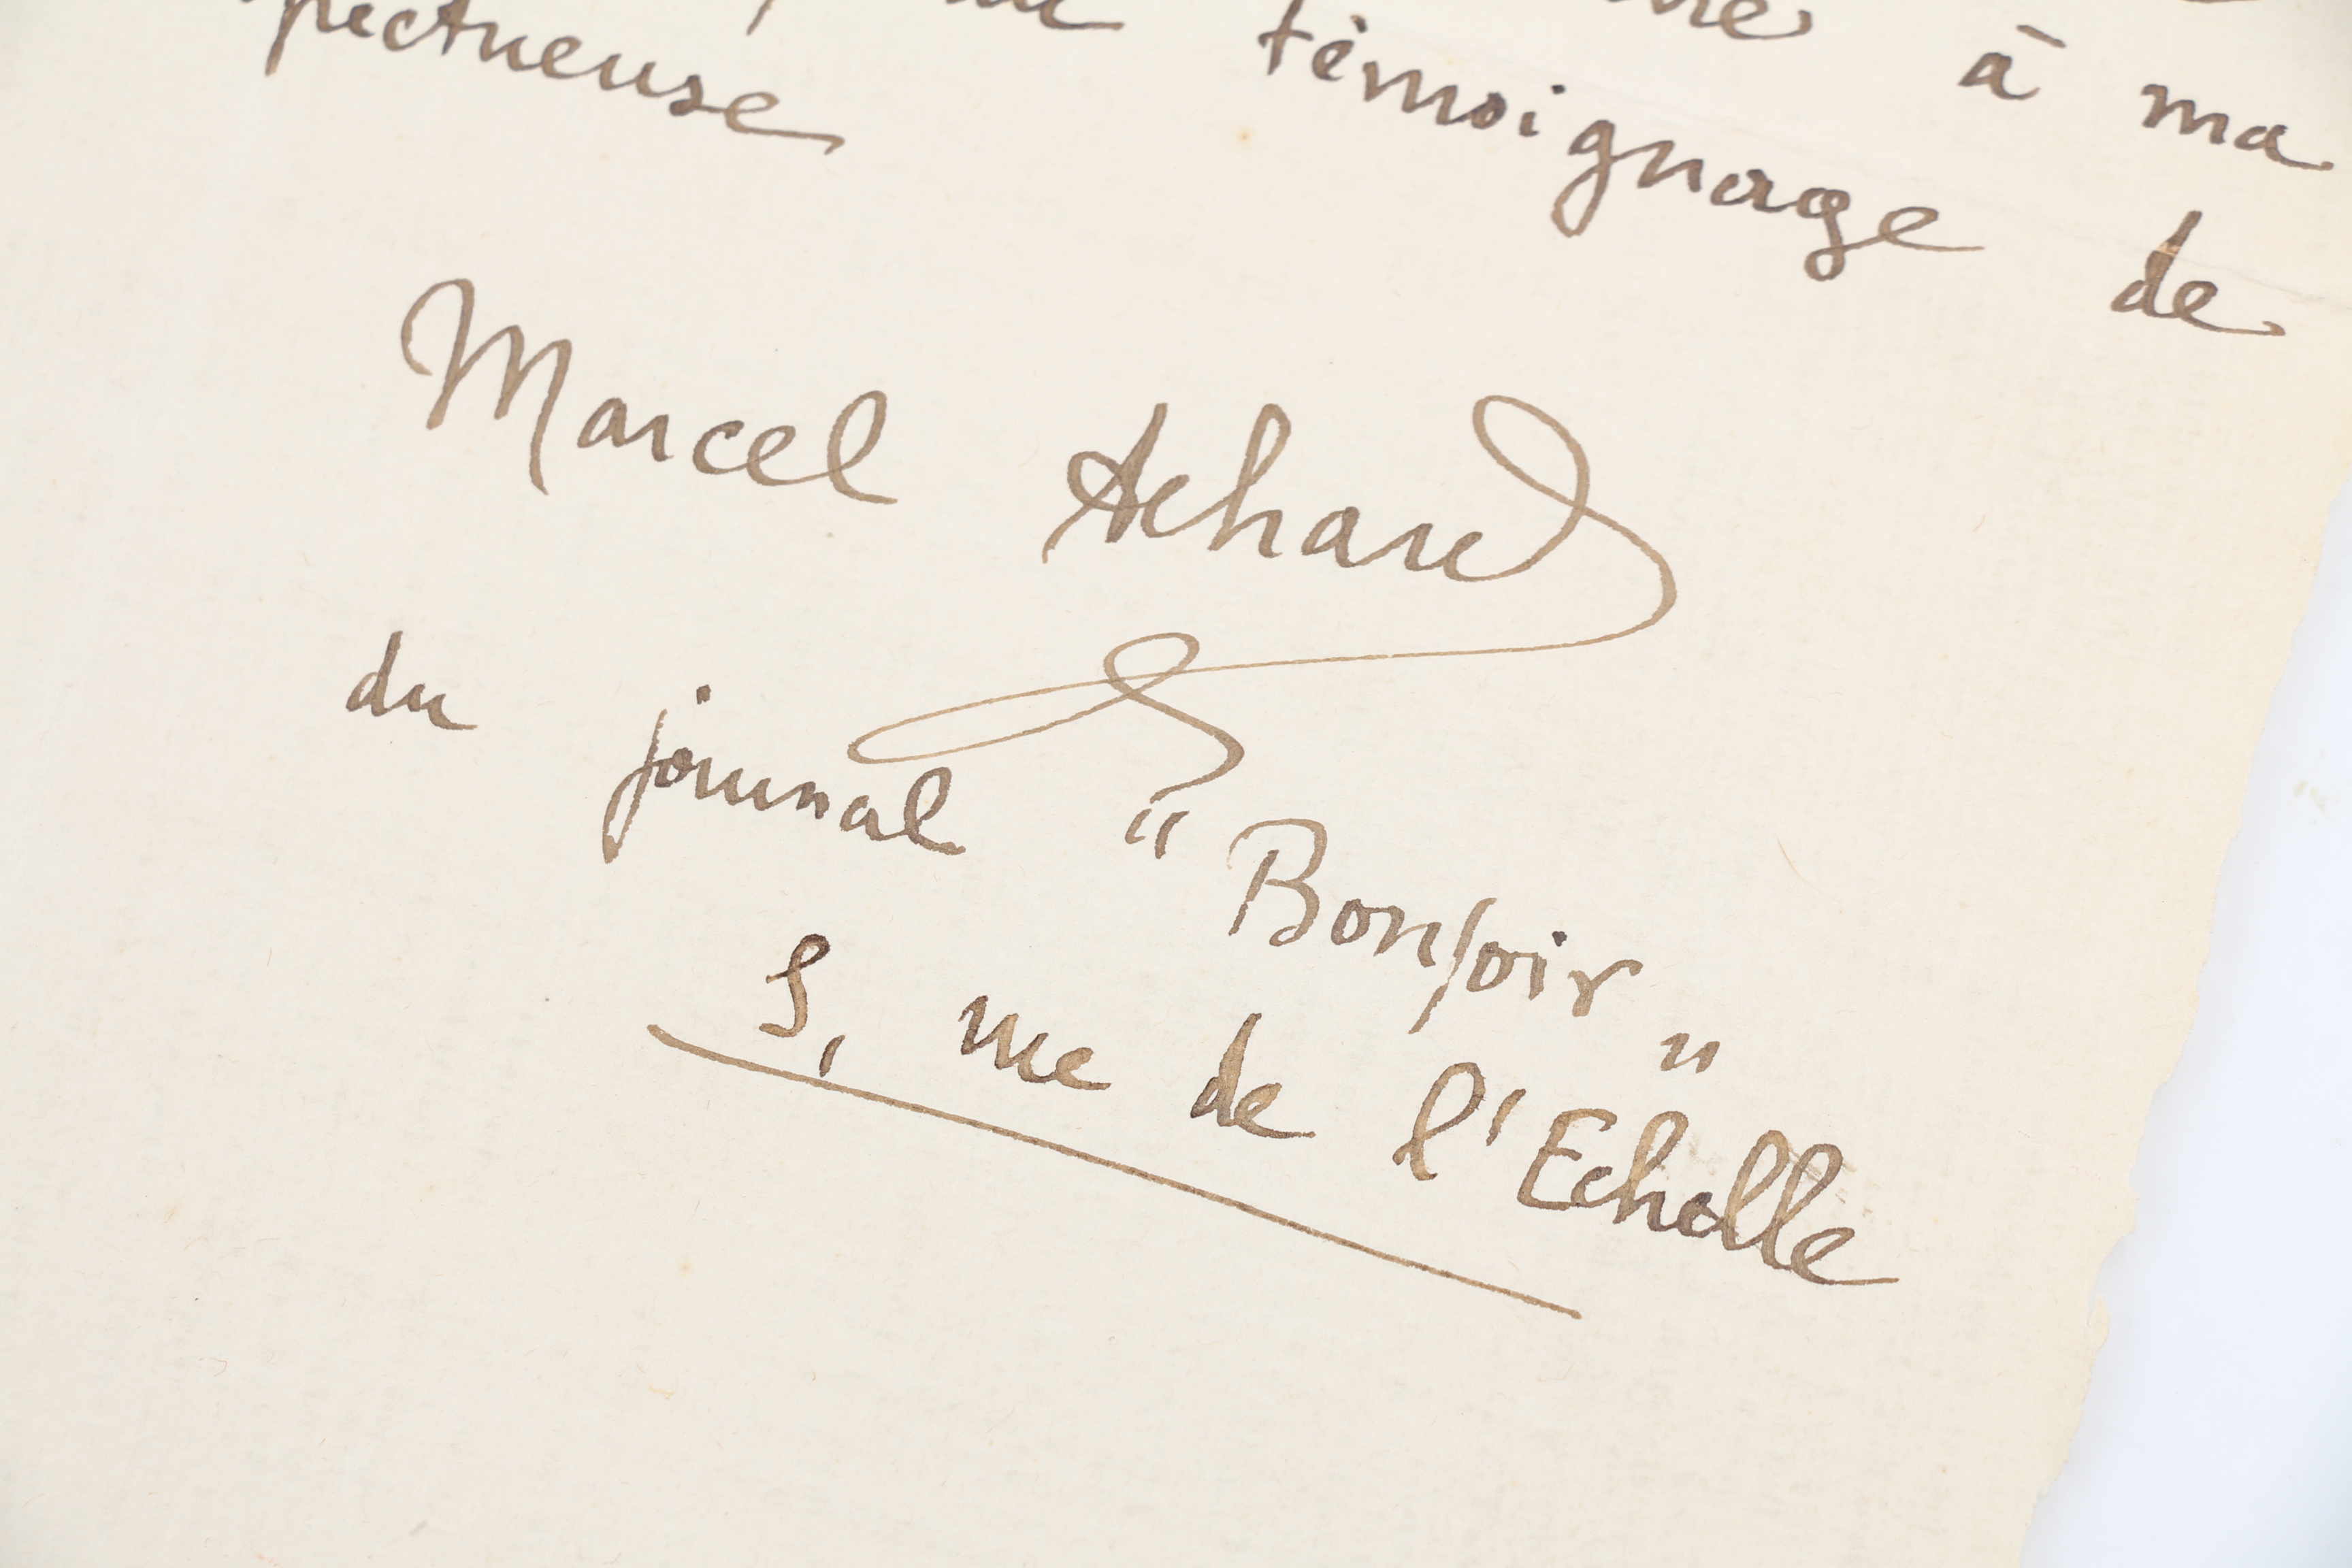 à ma
témoignage de
pectueuse
Marcel Achard
du journal "Bonsoir"
rue de l'Echelle